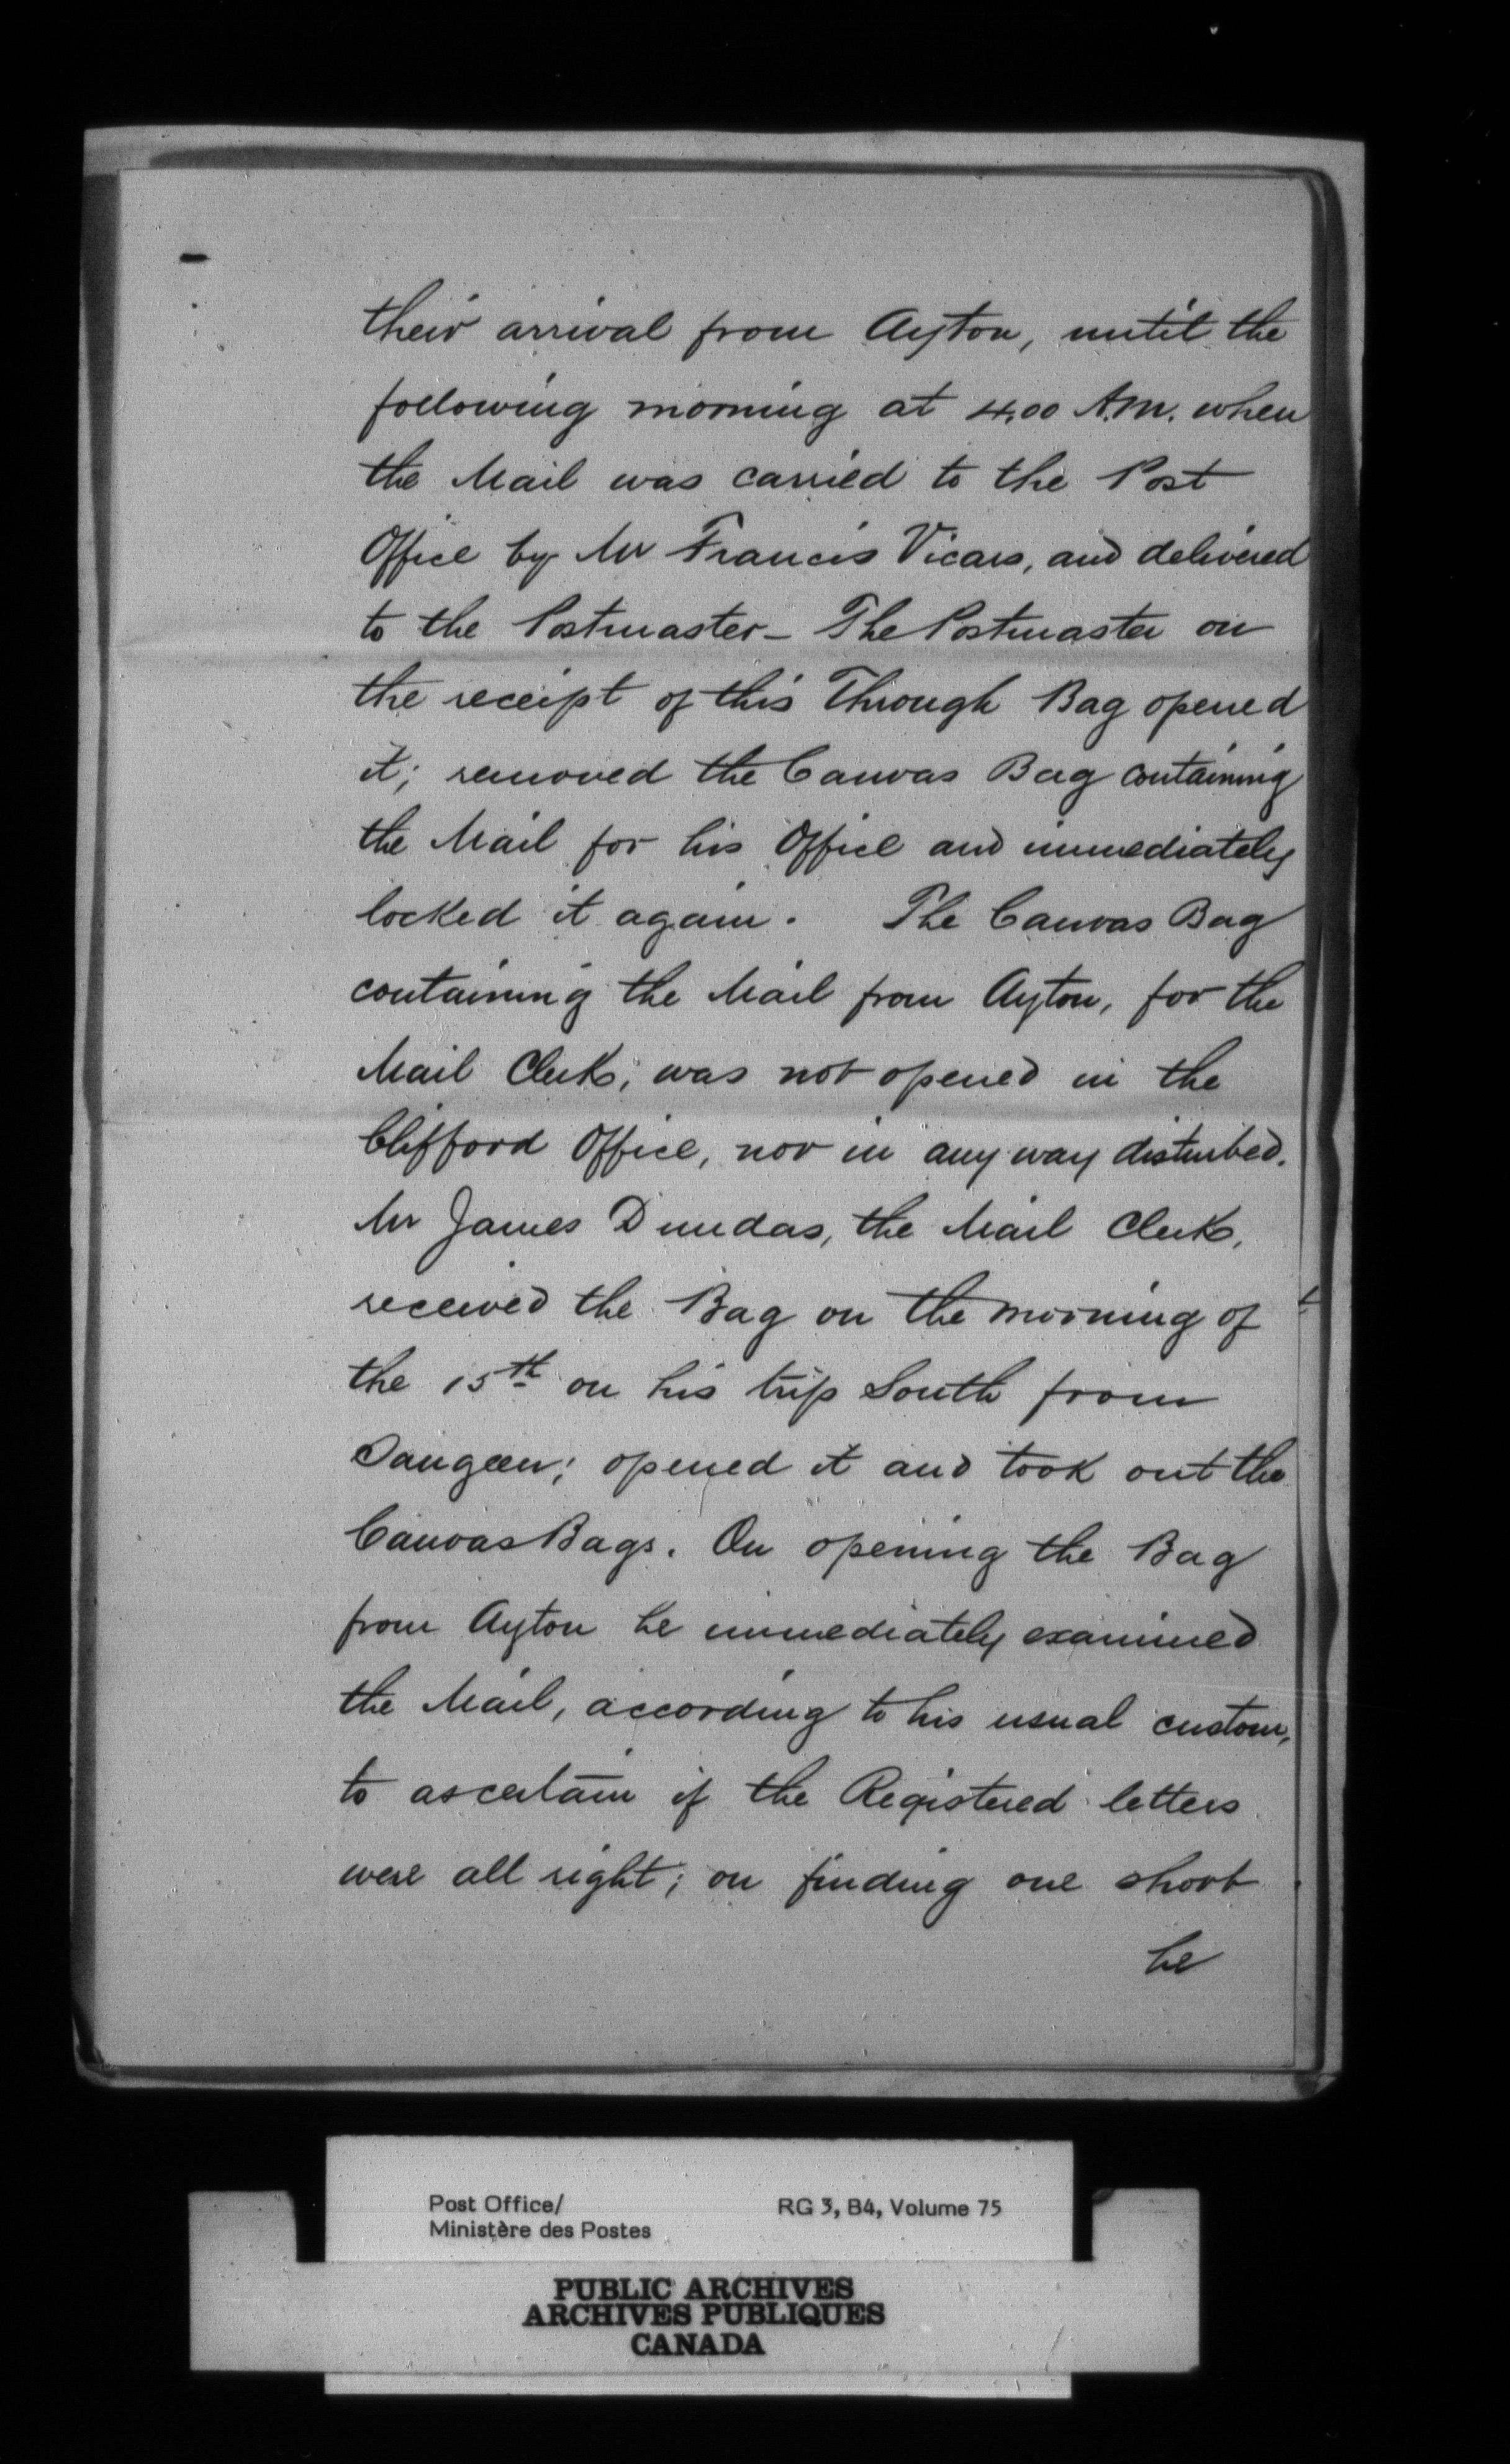 their arrival from Ayton, until the
following morning at 4.00 A.M. when
the Mail was carried to the Post
Office by Mr Francis Vicars, and delivered
to the Postmaster - The Postmaster on
the receipt of this Through Bag opened
it; removed the Canvas Bag containing
the Mail for his Office and immediately
locked it again. The Canvas Bag
containing the Mail from Ayton, for the
Mail Clerk, was not opened in the
Clifford Office, nor in any way disturbed.
Mr James Dundas, the Mail Clerk,
received the Bag on the morning of
the 15th on his trip South from
Saugeen; opened it and took out the
Canvas Bags. On opening the Bag
from Ayton he immediately examined
the Mail, according to his usual custom,
to ascertain if the Registered letters
were all right; on finding one short
he
Post Office/ RG 3, B4, Volume 75
Ministère des Postes
PUBLIC ARCHIVES
ARCHIVES PUBLIQUES
CANADA